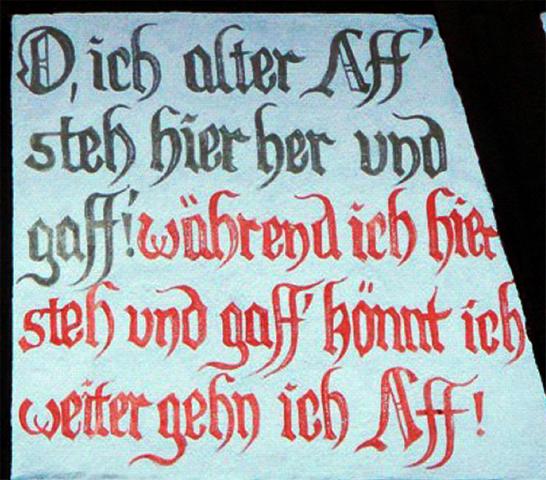 O, ich alter Aff'
steh hier her und
gaff'! während ich hier
steh und gaff' könnt ich
weiter gehn ich Aff!